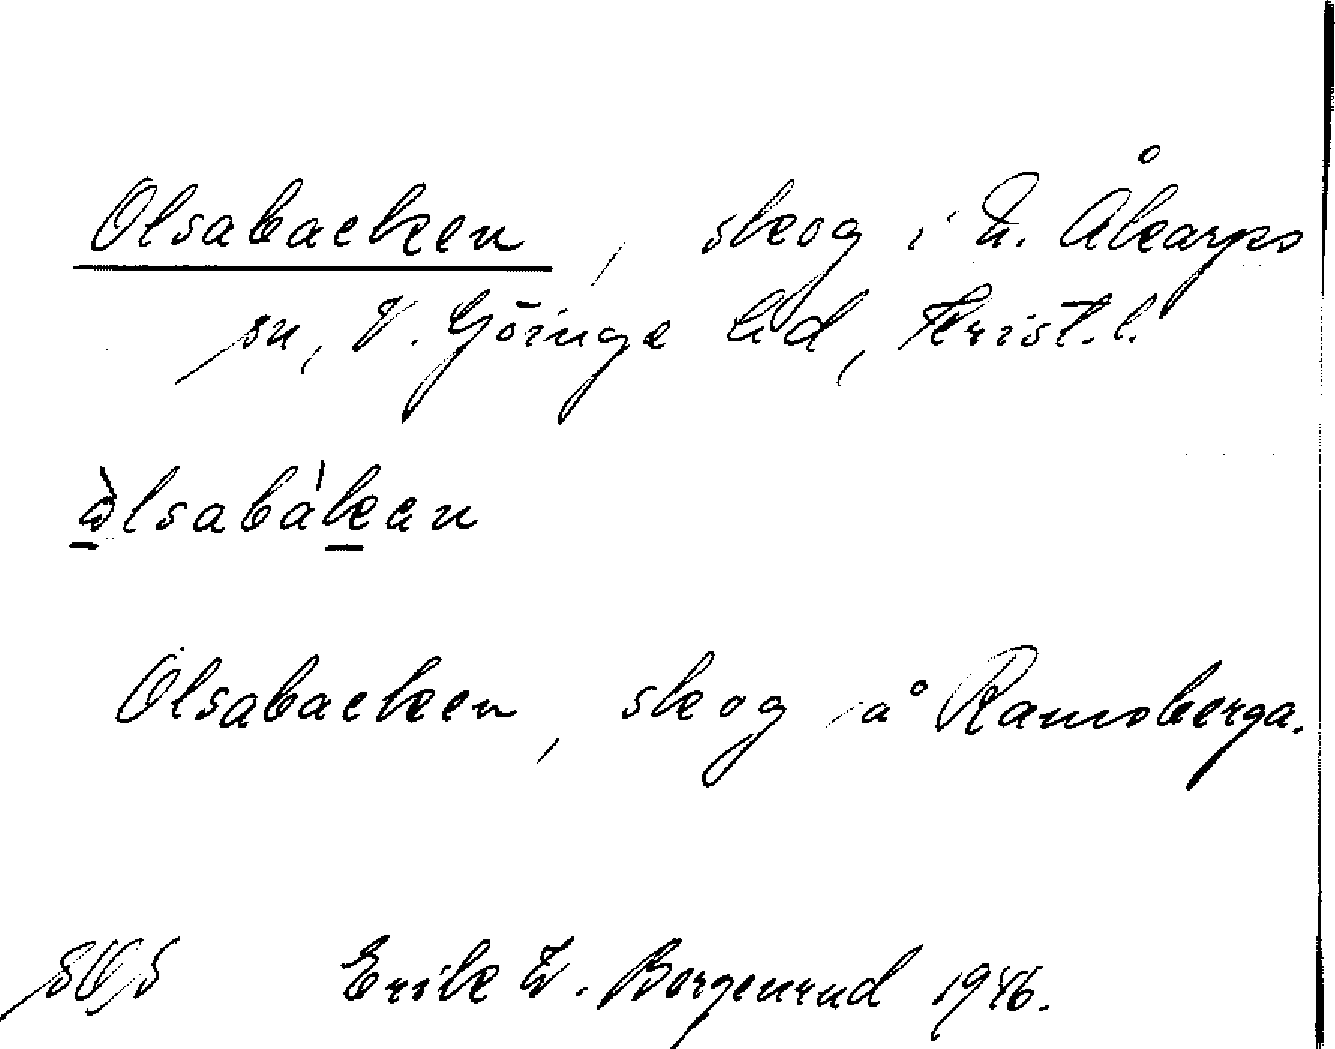 Olsabacken, skog i N. Åkarps
sn, V. Göinge hd, Krist. l.
òlsabàkan
Olsabacken, skog å Ramsberga.
Erik W. Borgenrud 1946.